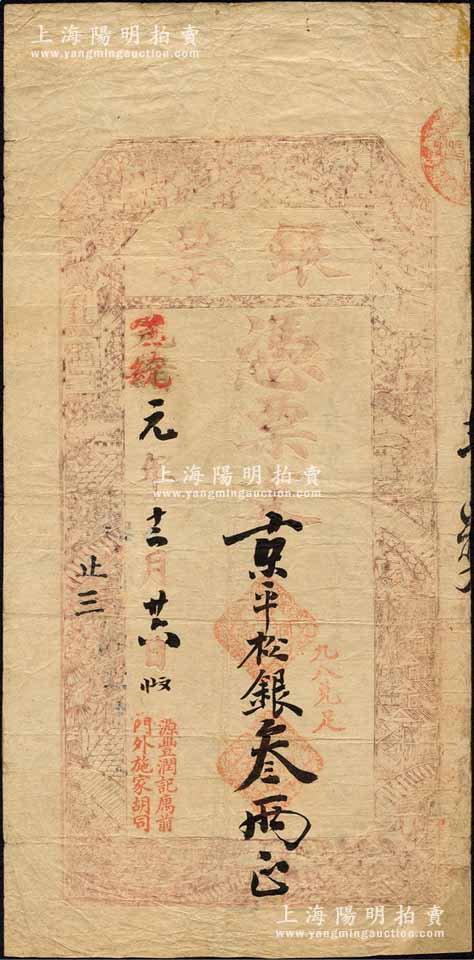 上海陽明拍賣
www.yangmingauction.com
上海陽明拍賣
www.yangmingauction.com
銀票
憑票
京平松銀叁兩正
九八兌足
宣統元年十二月廿六日
止三
源豐潤記寓前
門外施家胡同
上海陽明拍賣
www.yangmingauction.com
上海陽明拍賣
www.yangmingauction.com